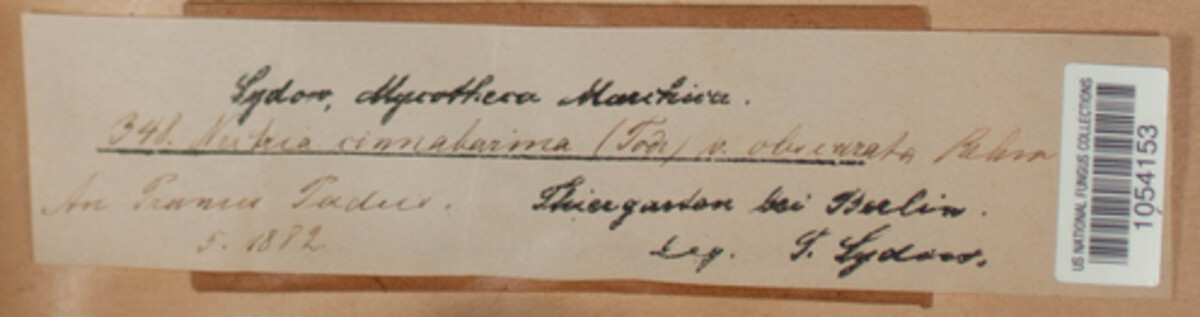 Sydow, Mycotheca Marchica.
348. Nectria cinnabarina (Tode) v. obscurata Rehm
An Prunus Padus.
Thiergarten bei Berlin.
5. 1882
Leg. P. Sydow.
US NATIONAL FUNGUS COLLECTIONS
1054153